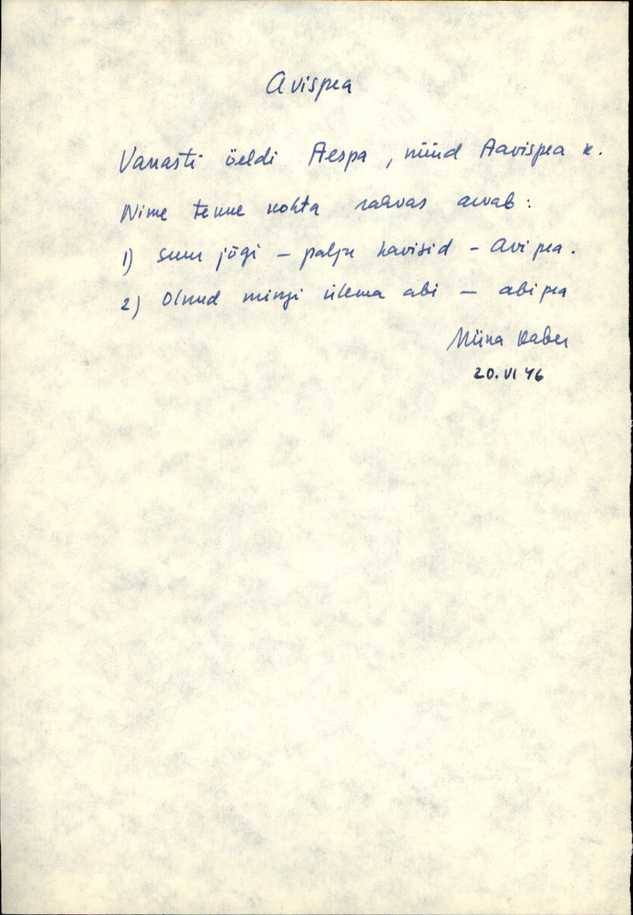 Avispea
Vanasti öeldi Aespa, nüüd Aavispea k.
Nime tekke kohta rahvas arvab:
1) suur jõgi – palju havisid – Avipea.
2) Olnud mingi ülema abi – abipea
Miina Kaber
20.VI 46